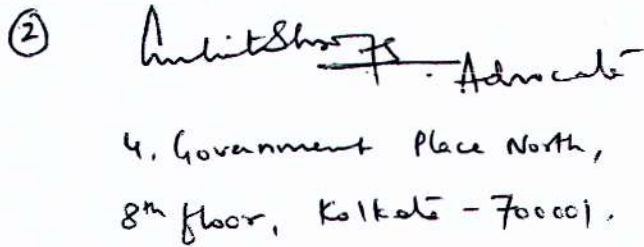 ② Advocate
4, Government Place North,
8th floor, Kolkata - 700001.